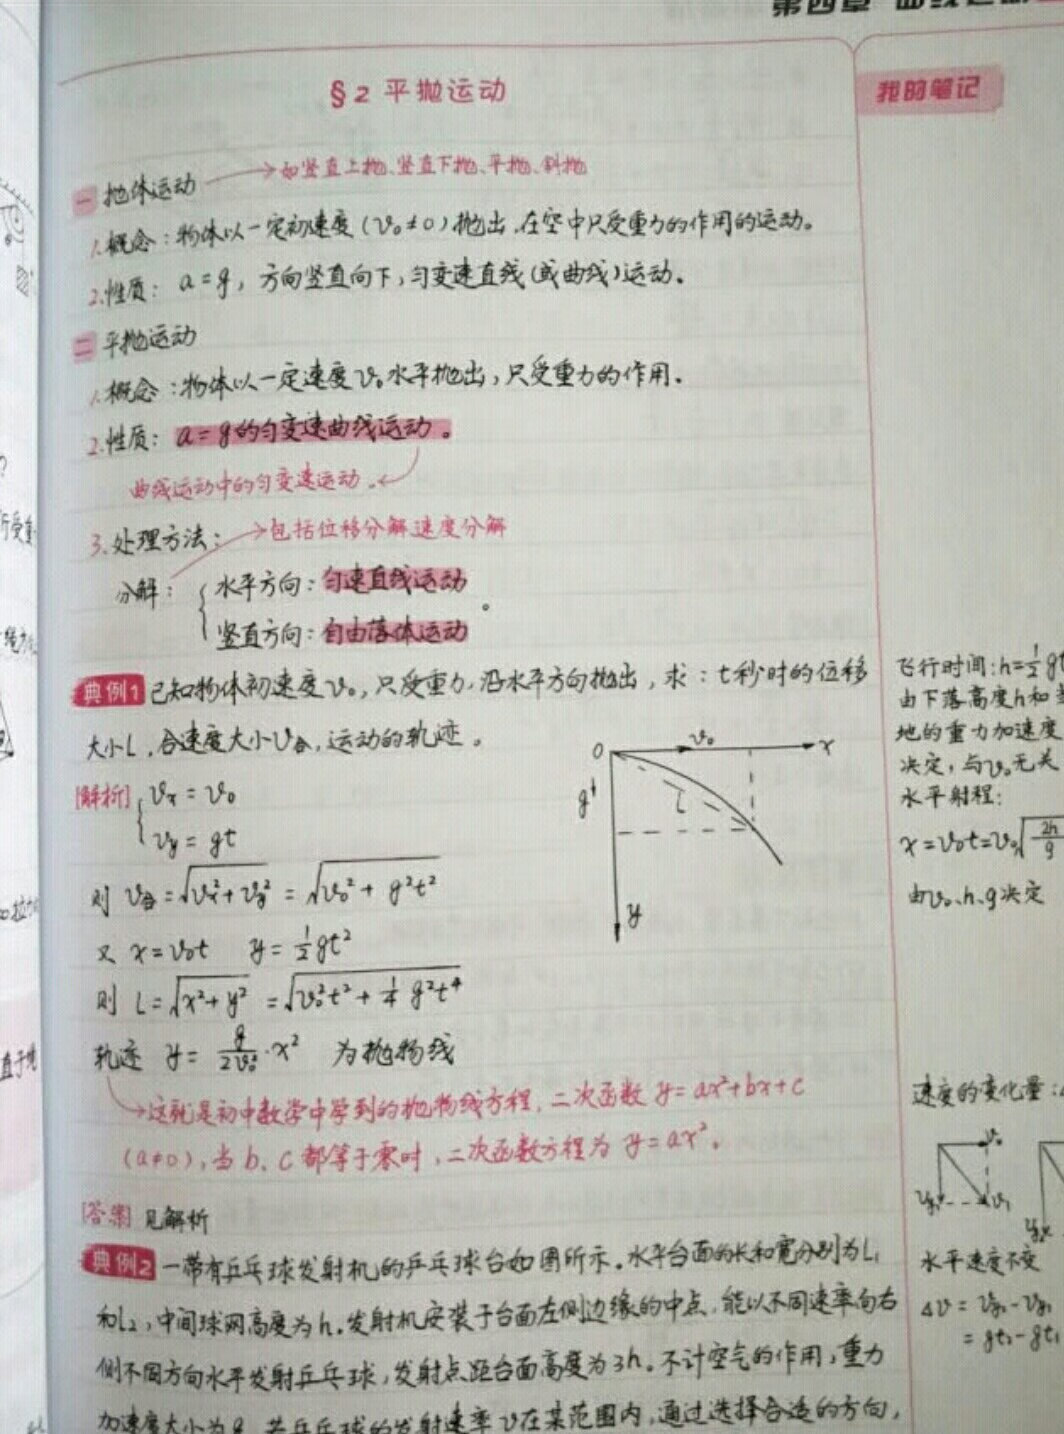 第四章 曲线运动
§2 平抛运动
我的笔记
一 抛体运动 → 如竖直上抛、竖直下抛、平抛、斜抛
1.概念：物体以一定初速度（v₀≠0）抛出，在空中只受重力的作用的运动。
2.性质： a=g，方向竖直向下，匀变速直线（或曲线）运动。
二 平抛运动
1.概念：物体以一定速度v₀水平抛出，只受重力的作用。
2.性质：a=g的匀变速曲线运动。
曲线运动中的匀变速运动。
3.处理方法： → 包括位移分解速度分解
分解：{ 水平方向：匀速直线运动
竖直方向：自由落体运动 。
典例1 已知物体初速度v₀，只受重力，沿水平方向抛出，求：t秒时的位移
大小L，合速度大小v合，运动的轨迹。
[解析] { vx=v₀
vy=gt
则 v合=√(vx²+vy²)=√(v₀²+g²t²)
又 x=v₀t y=½gt²
则 L=√(x²+y²)=√(v₀²t²+¼g²t⁴)
轨迹 y=g/(2v₀²)·x² 为抛物线
→这就是初中数学中学到的抛物线方程，二次函数 y=ax²+bx+c
(a≠0)，当b、c都等于零时，二次函数方程为 y=ax²。
[答案] 见解析
典例2 一带有乒乓球发射机的乒乓球台如图所示。水平台面的长和宽分别为L₁
和L₂，中间球网高度为h。发射机安装于台面左侧边缘的中点，能以不同速率向右
侧不同方向水平发射乒乓球，发射点距台面高度为3h。不计空气的作用，重力
加速度大小为g，若乒乓球的发射速率v在某范围内，通过选择合适的方向，
O v₀ x
g L
y
飞行时间：h=½gt
由下落高度h和当
地的重力加速度
决定，与v₀无关
水平射程：
x=v₀t=v₀√(2h/g)
由v₀、h、g决定
速度的变化量：
v₀
vy₁ v₁
水平速度不变
Δv=vy₂-vy₁
=gt₂-gt₁